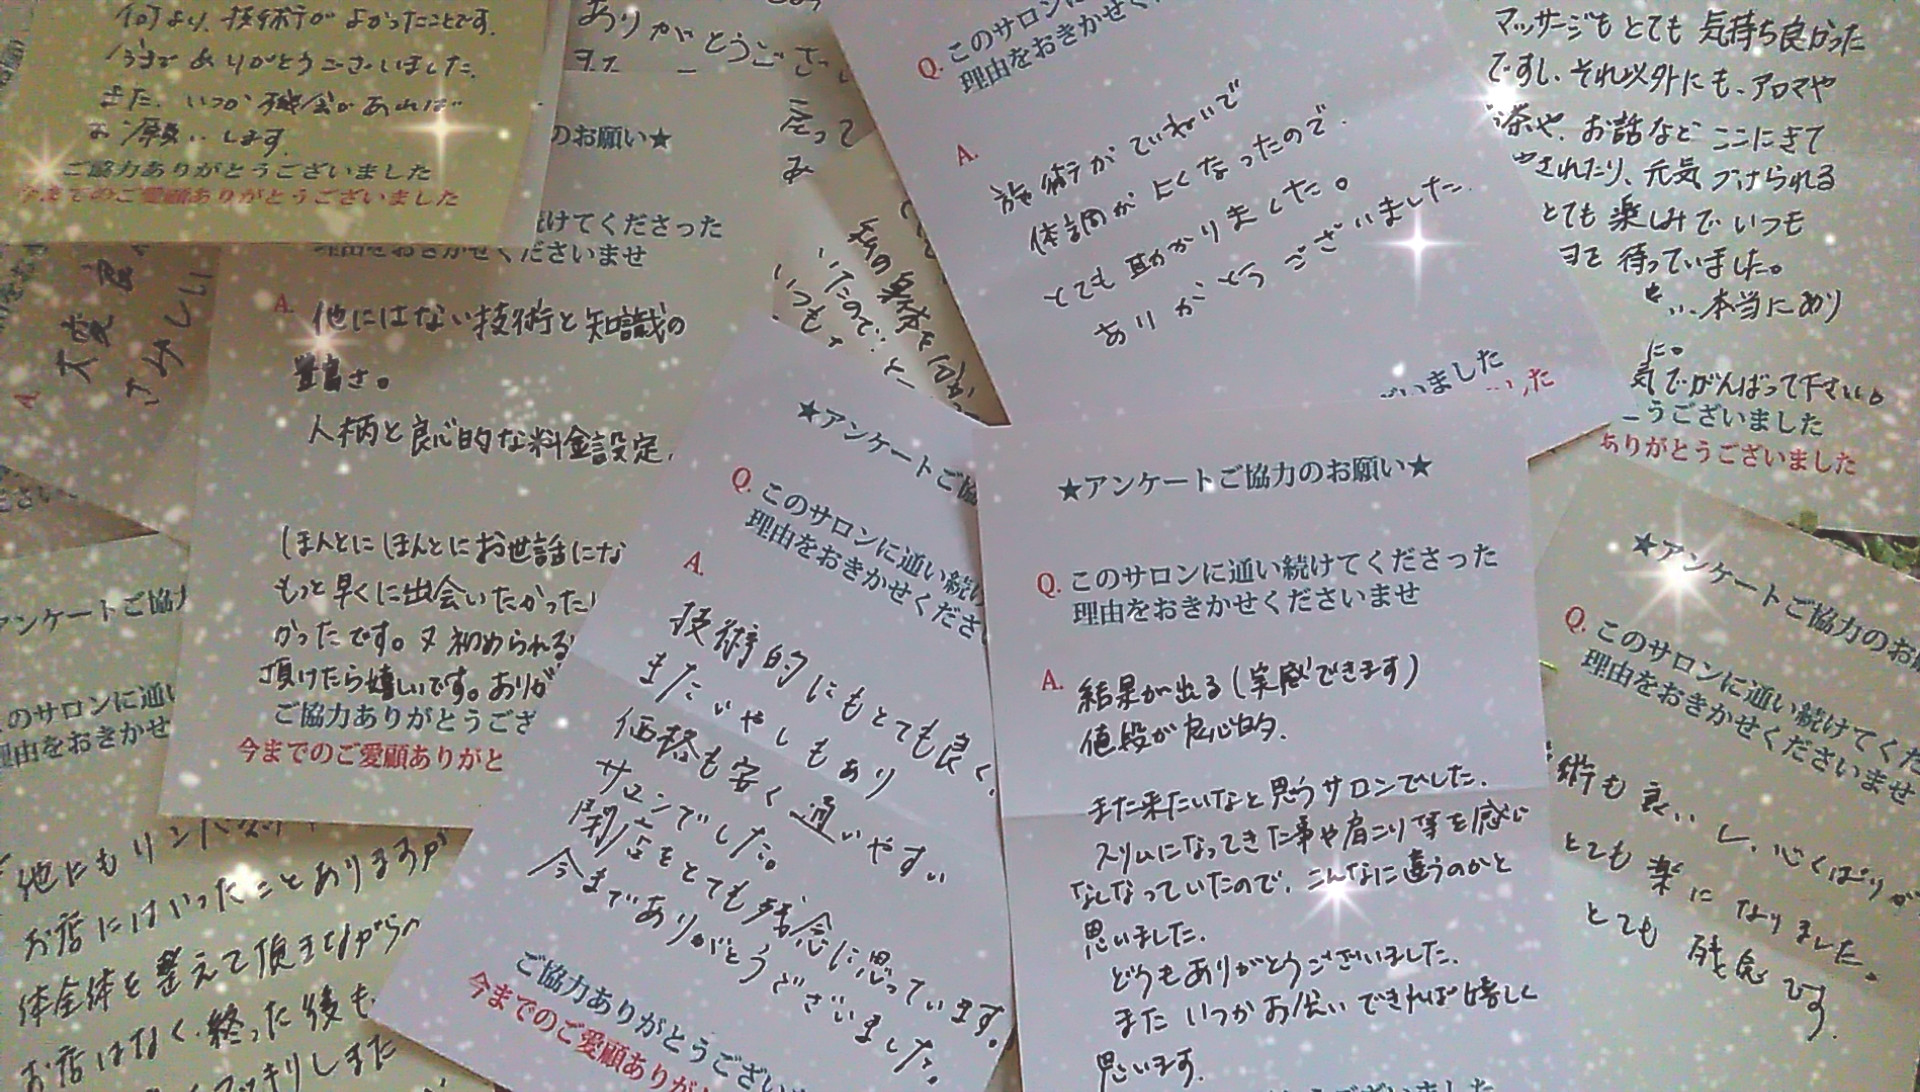 何より、技術がよかったことです。
今まで ありがとうございました。
また、いつか機会があれば
お願いします。
ご協力ありがとうございました
今までのご愛顧ありがとうございました
ありがとうござい
戻って
み
のお願い★
けてくださった
理由をおきかせくださいませ
A. 他にはない技術と知識の
豊富さ。
人柄と良心的な料金設定。
ほんとにほんとにお世話にな
もっと早くに出会いたかった
かったです。又初められる
頂けたら嬉しいです。ありが
ご協力ありがとうござ
今までのご愛顧ありがと
Q. このサロンに
理由をおきかせく
A. 施術がていねいで
体調がよくなったので、
とても助かりました。
ありがとうございました。
いました
した
マッサージもとても気持ち良かった
ですし、それ以外にも、アロマや
お茶や、お話など ここにきて
やされたり、元気づけられる
とても楽しみでいつも
待っていました。
本当にあり
に。
気でがんばって下さい。
うございました
ありがとうございました
★アンケートご協
Q. このサロンに通い続け
理由をおきかせくださ
A. 技術的にもとても良く、
またいやしもあり
価格も安く通いやすい
サロンでした。
閉店をとても残念に思っています。
今までありがとうございました。
ご協力ありがとうござい
今までのご愛顧ありが
★アンケートご協力のお願い★
Q. このサロンに通い続けてくださった
理由をおきかせくださいませ
A. 結果が出る(実感できます)
値段が良心的。
また来たいなと思うサロンでした。
スリムになってきた事や肩こり等を感じ
なくなっていたので、こんなに違うのかと
思いました。
どうもありがとうございました。
またいつかお会いできれば嬉しく
思います。
★アンケートご協力のお願
Q. このサロンに通い続けてくだ
理由をおきかせくださいませ
術も良いし、心くばりが
とても楽になりました。
とても残念です。
アンケートご協力
のサロンに通い
理由をおきかせ
他にもリンパ
お店にはいったことありますが
体全体を整えて頂きながら
お店はなく、終った後も
スッキリしまた